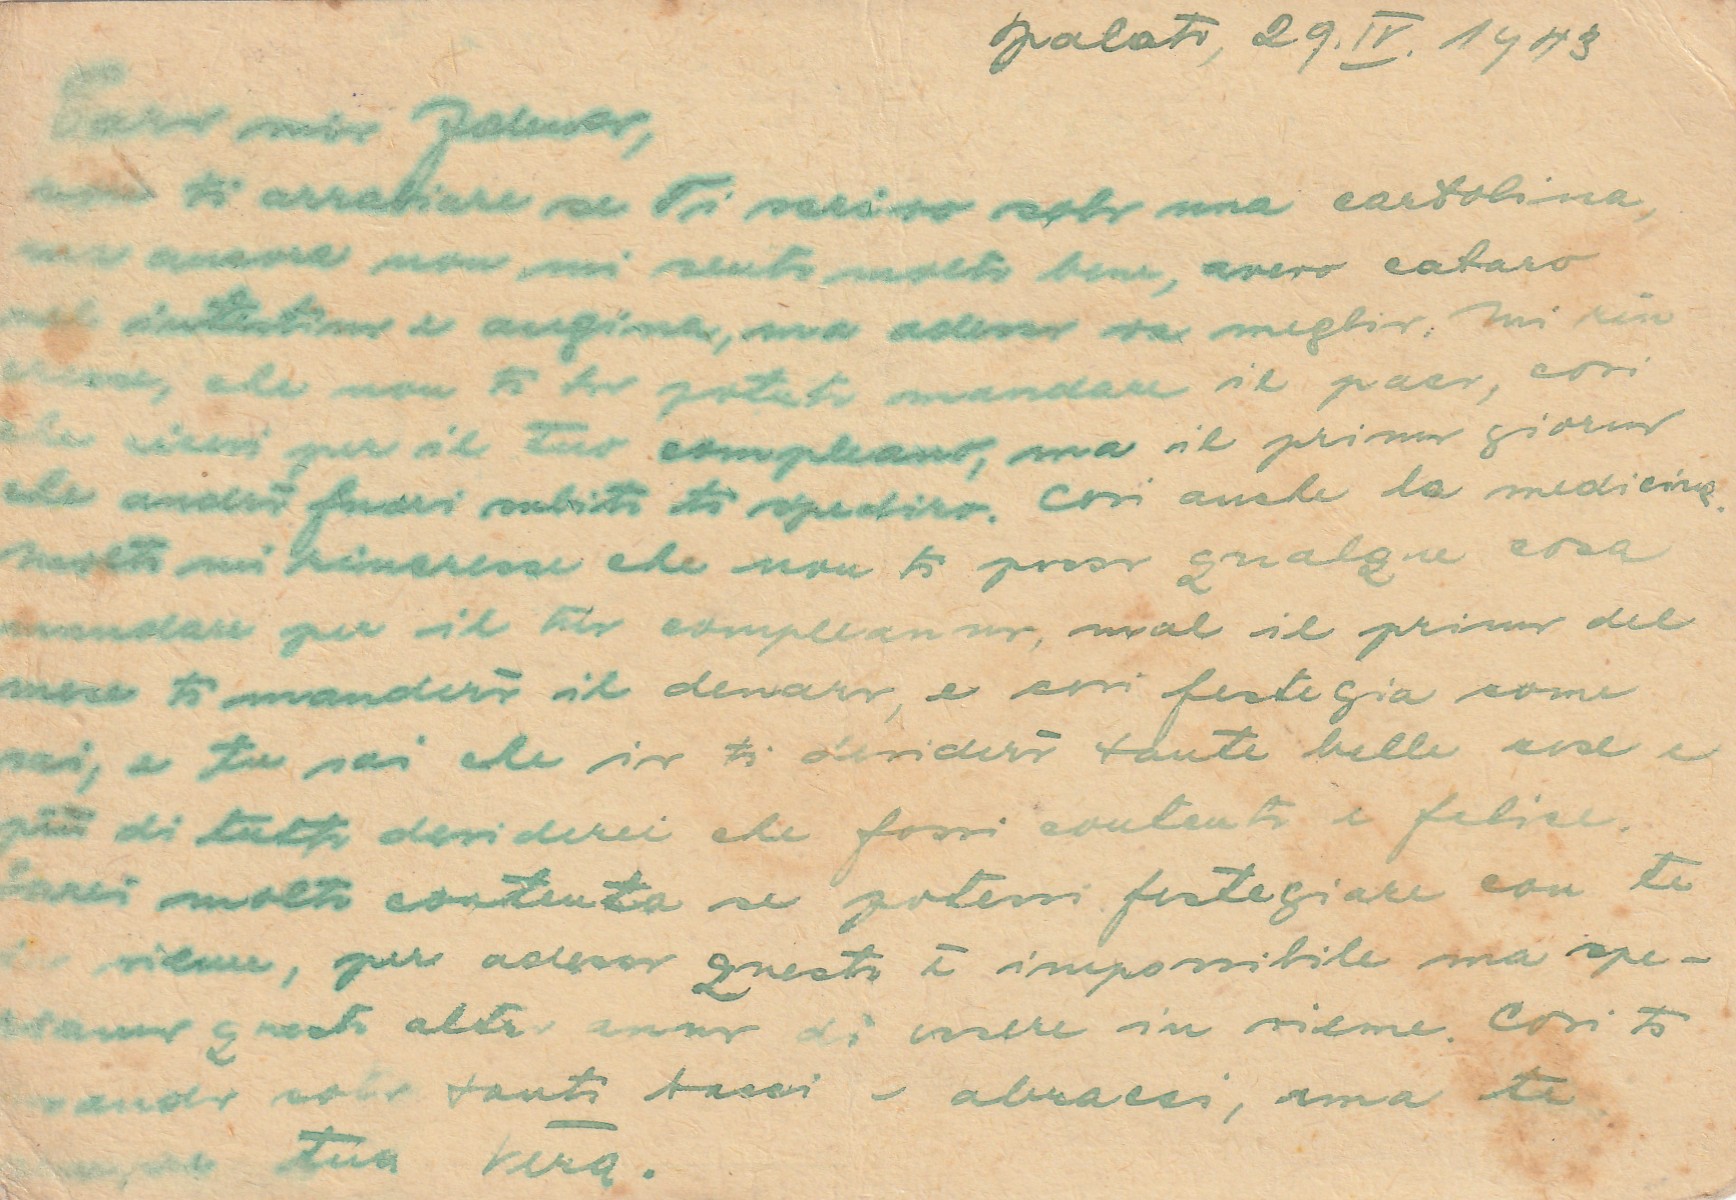 Spalato, 29.IV.1943
Caro mio Zdenko,
non ti arrabiare se Ti scrivo solo una cartolina,
ma ancora non mi sento molto bene, avevo cataro
nel intestino e angina, ma adesso va meglio. Mi rin
cresse, che non ti ho potuto mandare il paco, cosi
che ricevi per il tuo compleano, ma il primo giorno
che andrò fuori subito ti spediro. Cosi anche la medicina.
Molto mi rincresse che non ti posso qualque cosa
mandare per il tuo compleanno, mal il primo del
mese ti manderò il denaro, e cosi festegia come
sai, e tu sai che io ti desiderò tante belle cose e
più di tutto desiderei che fossi contento e felice.
Sarei molto contenta se potessi festegiare con te
in sieme, per adesso questo è impossibile ma spe-
riamo questo altro anno di essere in sieme. Cosi ti
mando solo tanti bacci e abracci, ama te
sempre tua Vera.